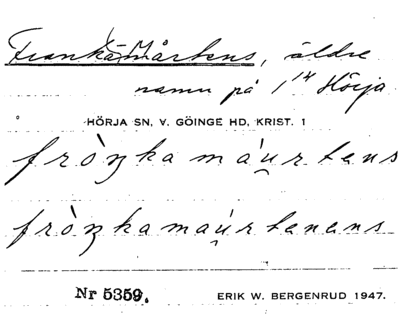 Frankā Mårtens, äldre
namn på 1¹⁴ Hörja
HÖRJA SN, V. GÖINGE HD, KRIST. 1
fròŋka máu̯rtens
fròŋkamáu̯rtenens
Nr 5359. ERIK W. BERGENRUD 1947.